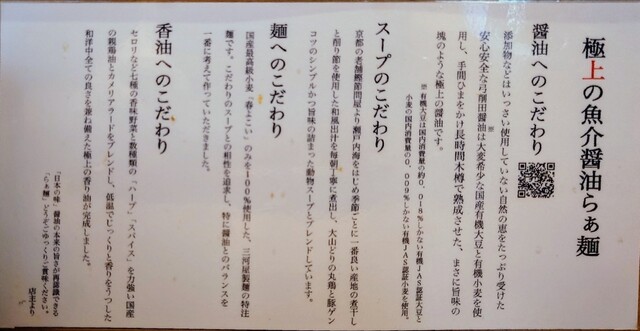 極上の魚介醤油らぁ麺
醤油へのこだわり
添加物などはいっさい使用していない自然の恵をたっぷり受けた
安心安全な弓削田醤油は大変希少な国産有機大豆と有機小麦を使
用し、手間ひまをかけ長時間木樽で熟成させた、まさに旨味の
塊のような極上の醤油です。
※有機大豆は国内消費量の約0.018%しかない有機JAS認証大豆と
小麦の国内消費量の0.009%しかない有機JAS認証小麦を使用。
スープのこだわり
京都の老舗鰹節問屋より瀬戸内海をはじめ季節ごとに一番良い産地の煮干し
と削り節を使用した和風出汁を毎朝丁寧に煮出し、大山どりの丸鶏と豚ゲン
コツのシンプルかつ旨味の詰まった動物スープとブレンドしています。
麺へのこだわり
国産最高級小麦「春よこい」のみを100%使用した、三河屋製麺の特注
麺です。こだわりのスープとの相性を追求し、特に醤油とのバランスを
一番に考えて作っていただきました。
香油へのこだわり
セロリなど七種の香味野菜と数種類の「ハーブ」「スパイス」を力強い国産
の親鶏油とカメリアラードをブレンドし、低温でじっくりと香りをうつした
和洋中全ての良さを兼ね備えた極上の香り油が完成しました。
「日本の味」醤油の本来の旨さが再認識できる
「らぁ麺」どうぞごゆっくりご賞味ください。
店主より